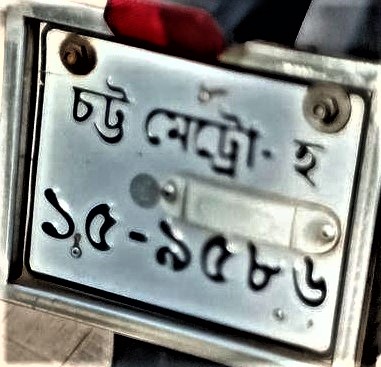 চট্ট মেট্রো-হ
১৫-৯৫৮৬